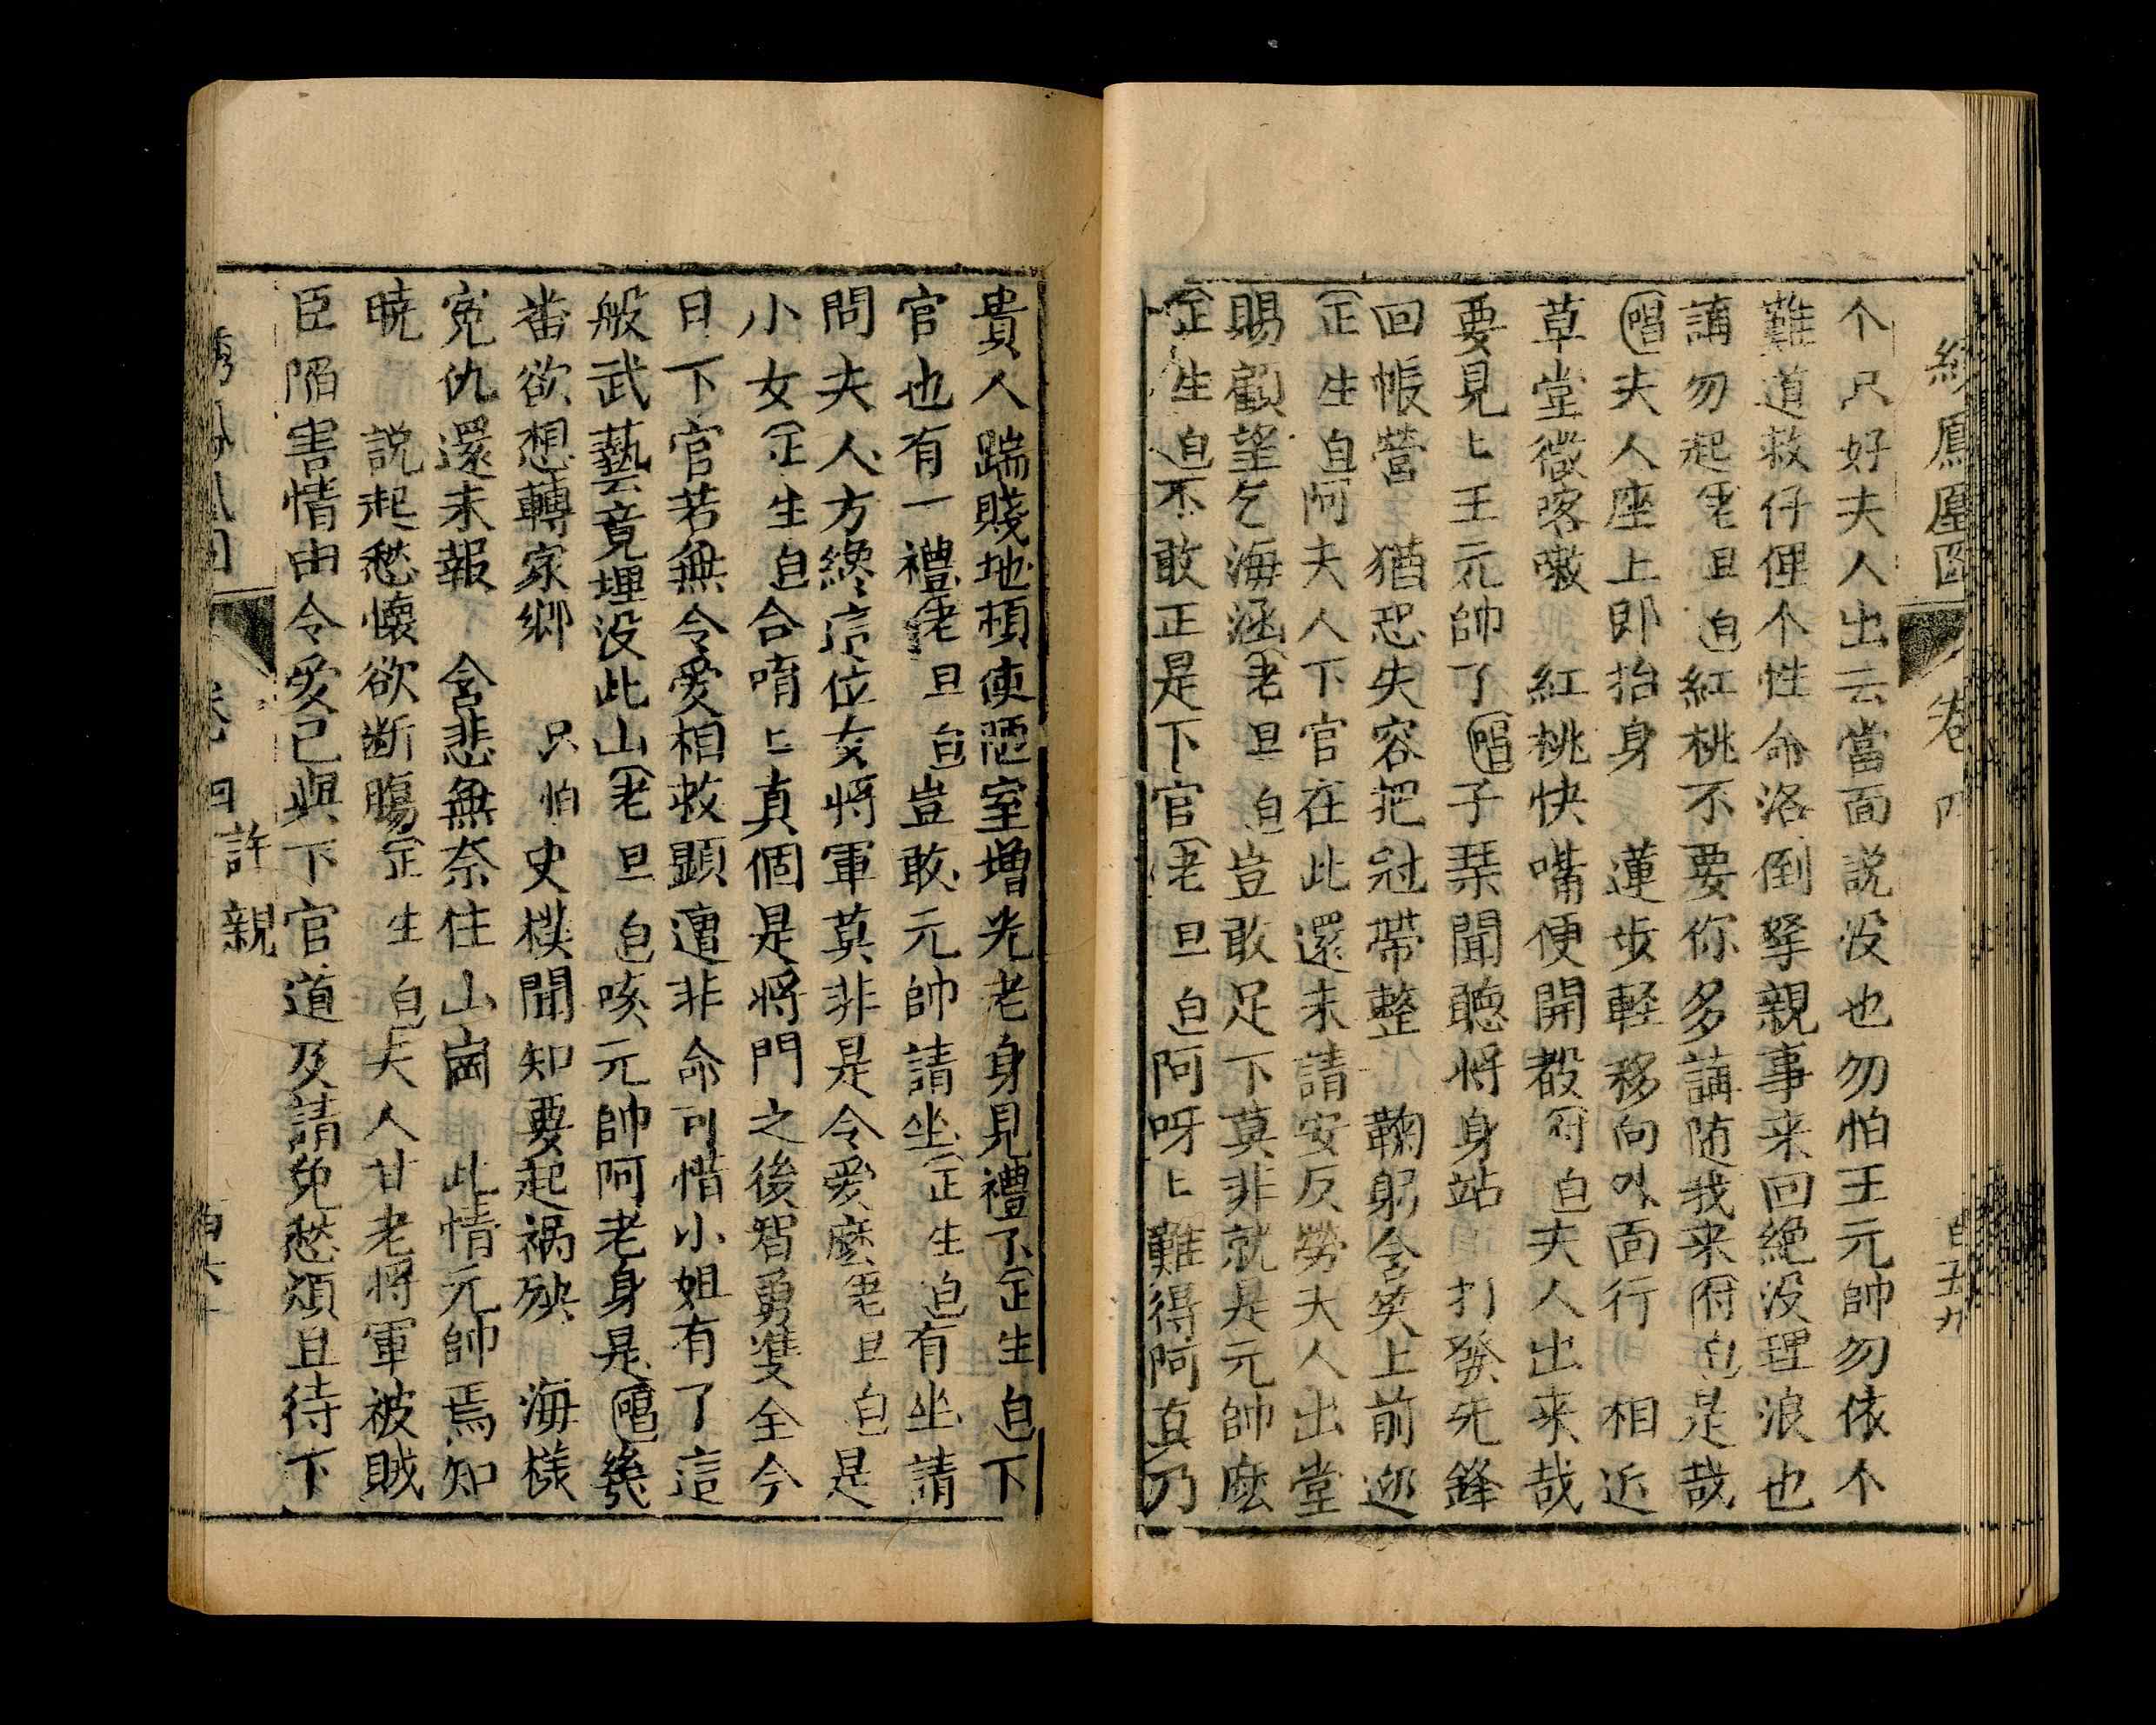 繡鳳凰圖 卷四 百五九
个只好夫人出云當面説没也勿怕王元帥勿依个
難道救仔俚个性命洛倒拏親事来回絶没理浪也
講勿起老旦白紅桃不要你多講随我来付白是哉
唱夫人座上即抬身 蓮步輕移向外面行 相近
草堂微咳嗽 紅桃快嘴便開聲付白夫人出来哉
要見上王元帥了唱子琹聞聽将身站 打發先鋒
回帳營 猶恐失容把冠帶整 鞠躬含笑上前迎
正生白阿夫人下官在此還未請安反勞夫人出堂
賜顧望乞海涵老旦白豈敢足下莫非就是元帥麽
正生白不敢正是下官老旦白阿呀上難得阿真乃
貴人踹賤地頓使陋室增光老身見禮了正生白下
官也有一禮老旦白豈敢元帥請坐正生白有坐請
問夫人方纔這位女将軍莫非是令爱麽老旦白是
小女正生白合唷上真個是将門之後智勇雙全今
日下官若無令爱相救顕遭非命可惜小姐有了這
般武藝竟埋没此山老旦白咳元帥阿老身是唱幾
番欲想轉家鄉 只怕史樸聞知要起禍殃 海樣
寃仇還未報 含悲無奈住山崗 此情元帥焉知
曉 説起愁懷欲断腸正生白夫人甘老将軍被賊
臣陷害情由令爱已與下官道及請免愁煩且待下
卷四 許親